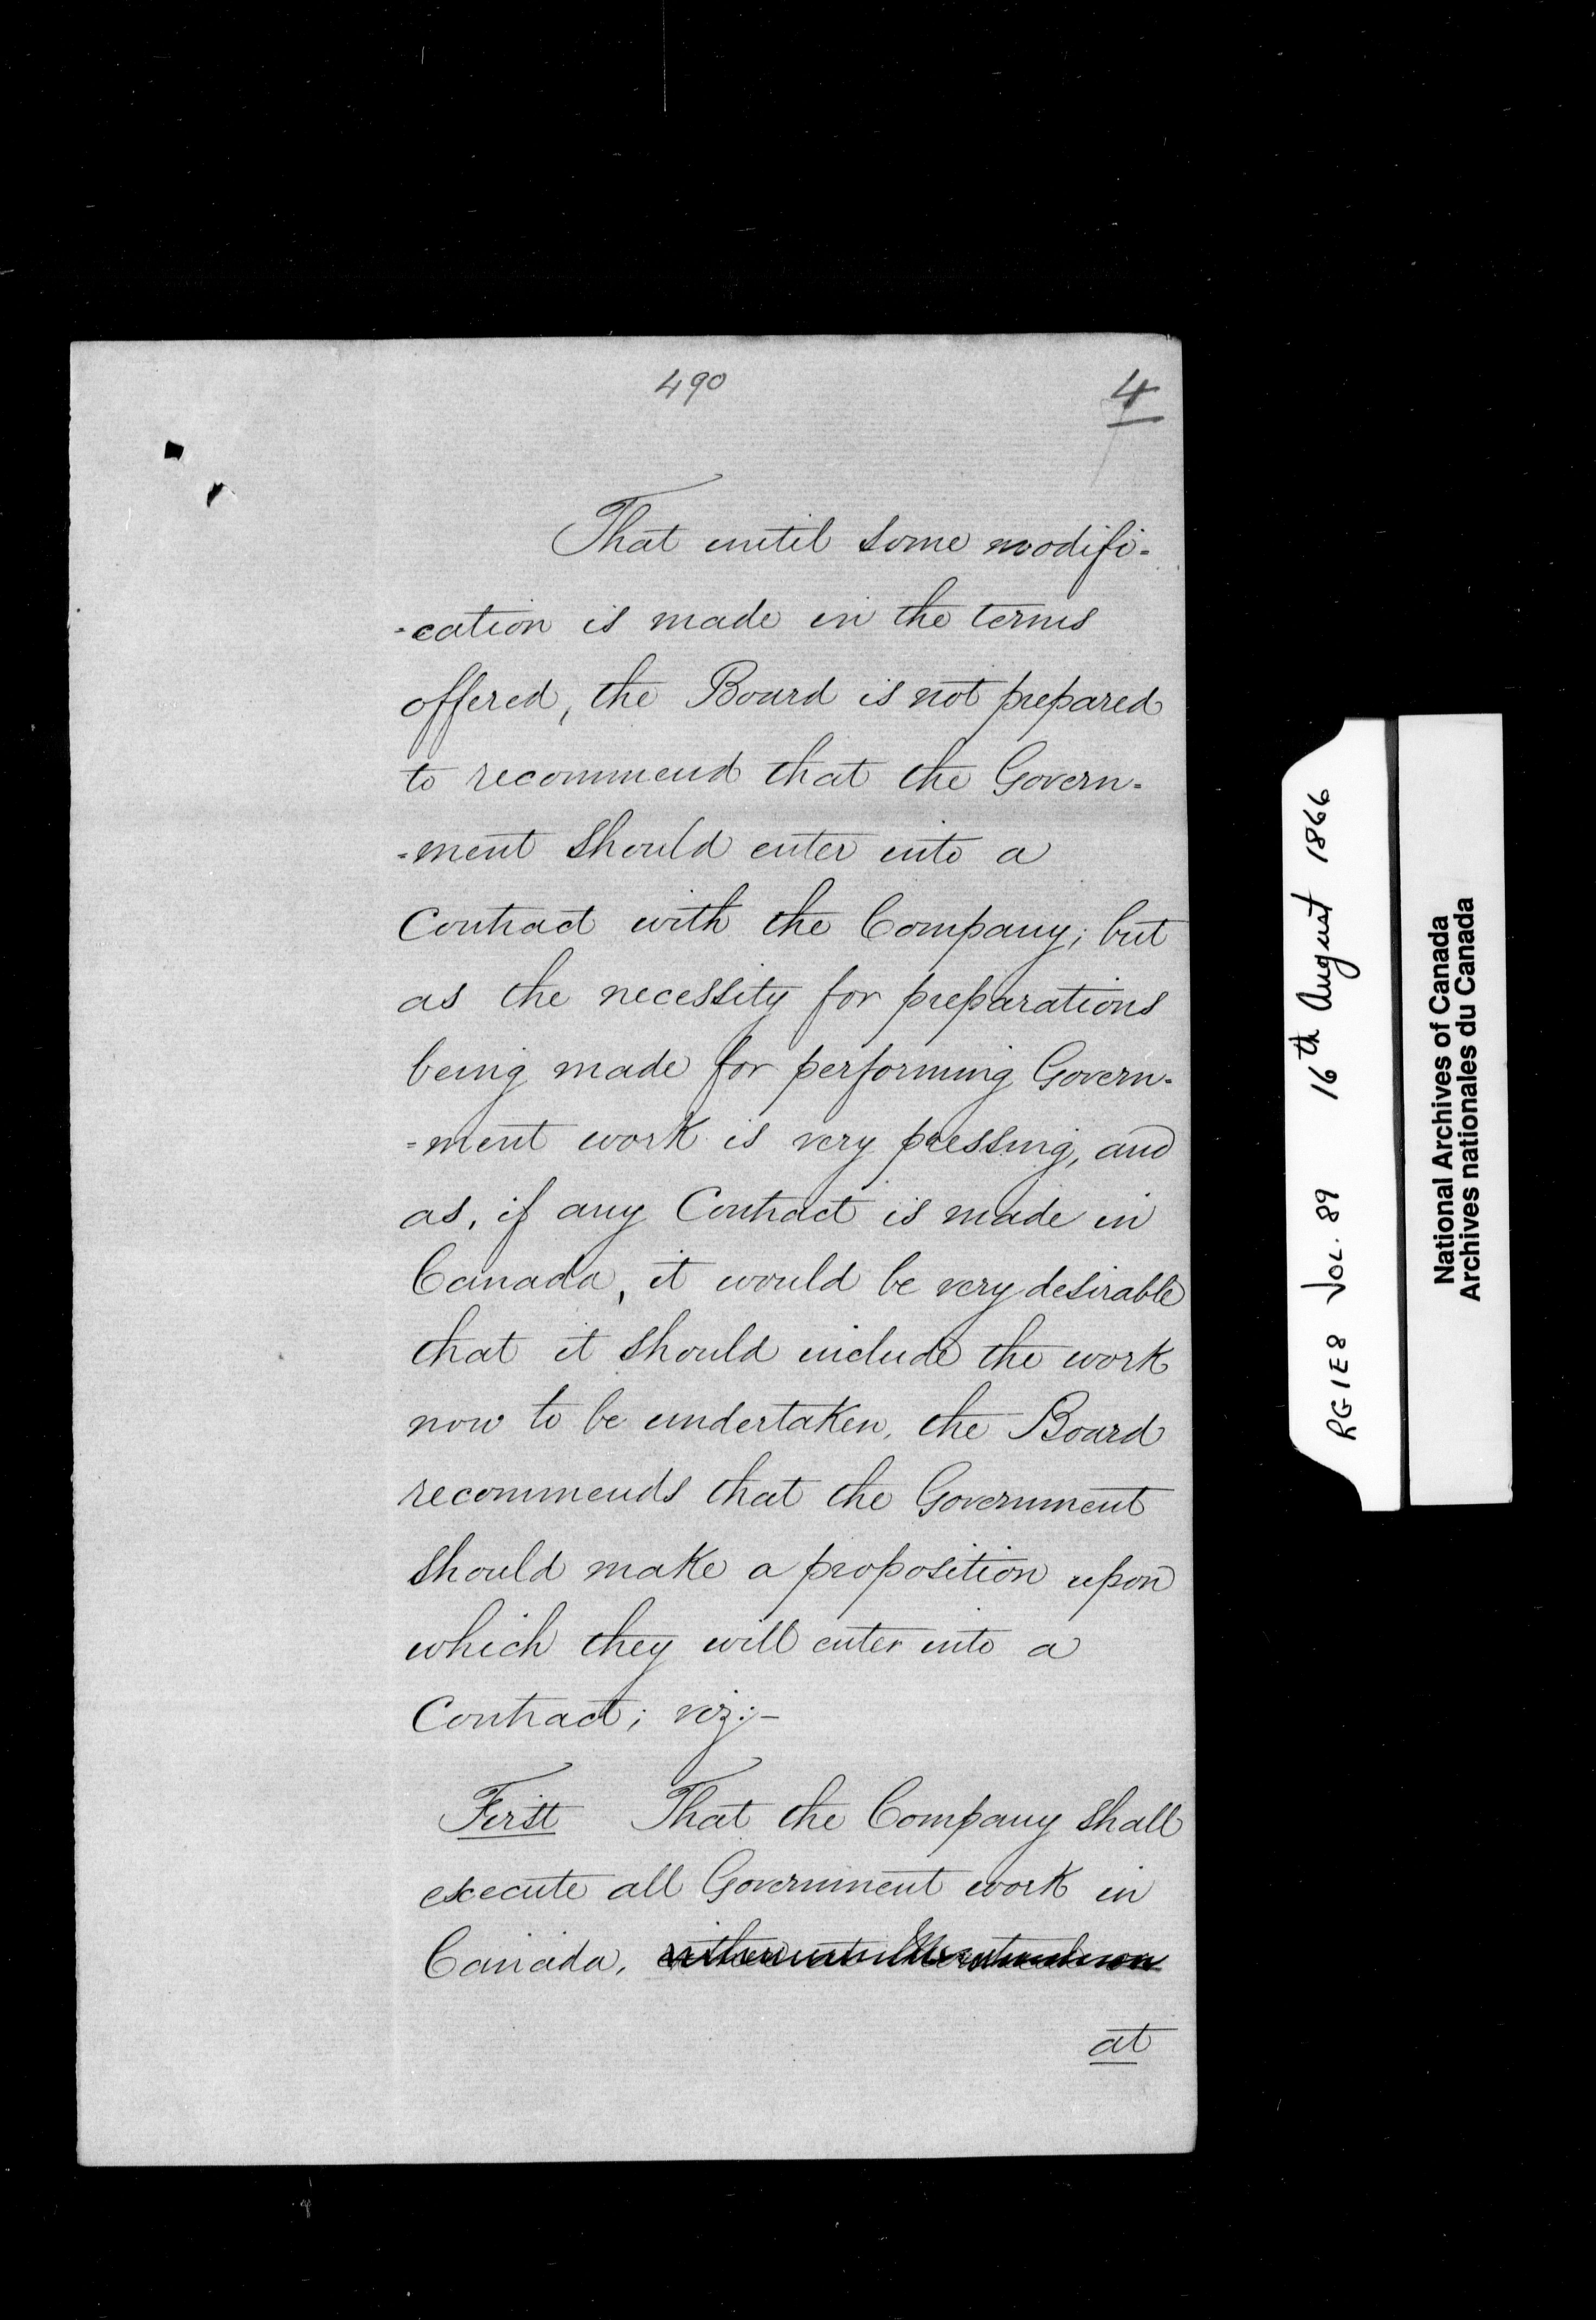 490
4
That until some modifi-
-cation is made in the terms
offered, the Board is not prepared
to recommend that the Govern-
-ment should enter into a
Contract with the Company; but
as the necessity for preparations
being made for performing Govern-
-ment work is very pressing, and
as, if any Contract is made in
Canada, it would be very desirable
that it should include the work
now to be undertaken, the Board
recommends that the Government
should make a proposition upon
which they will enter into a
Contract; viz:-
First That the Company shall
execute all Government work in
Canada,
at
RG1E8 VOL. 89 16th August 1866
National Archives of Canada
Archives nationales du Canada